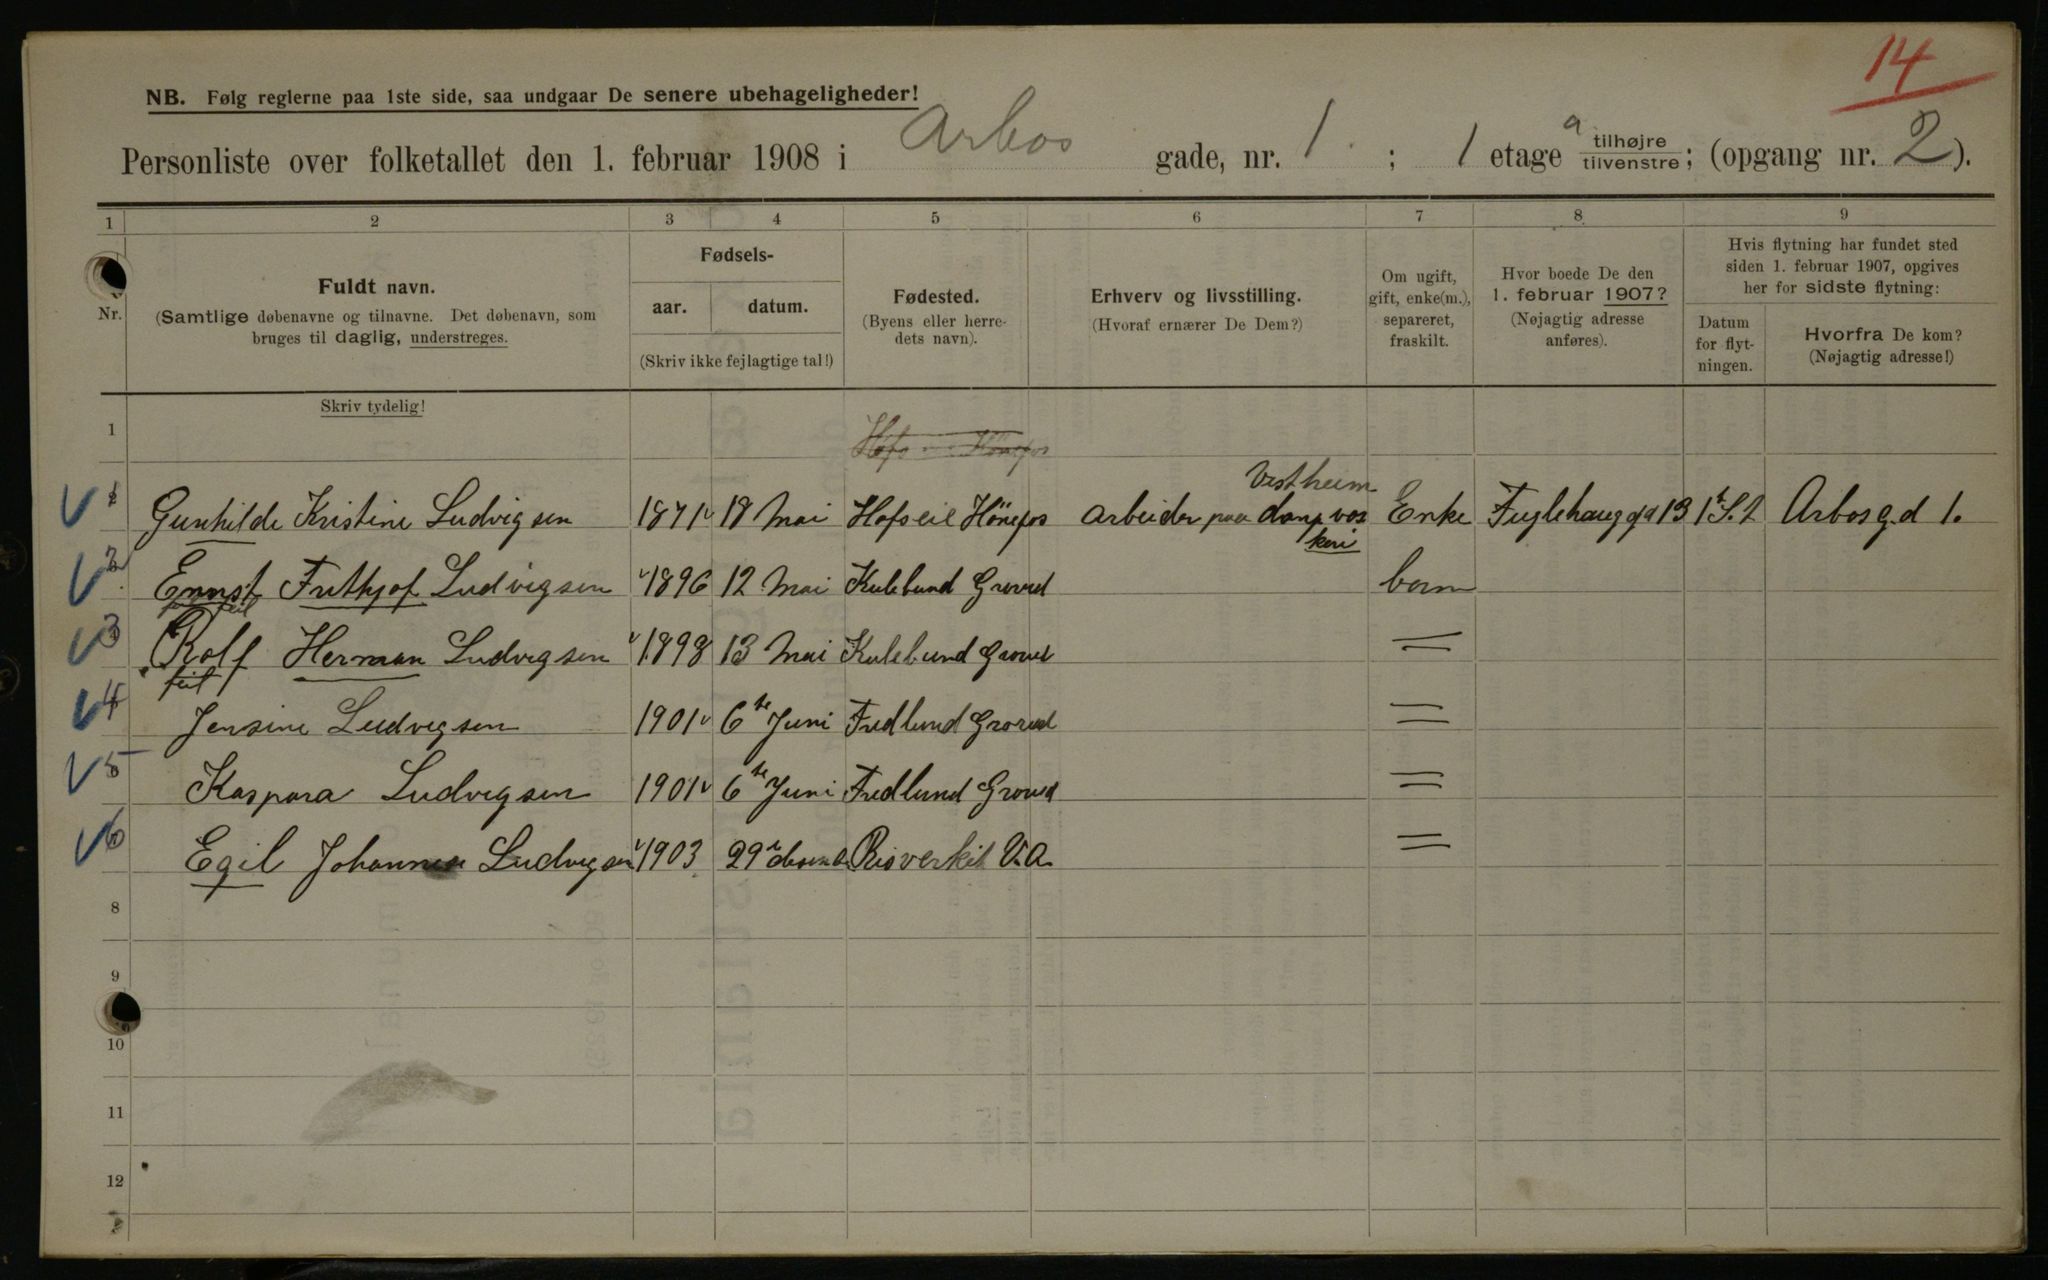 14
NB. Følg reglerne paa 1ste side, saa undgaar De senere ubehageligheder!
Personliste over folketallet den 1. februar 1908 i Arbos gade, nr. 1. ; 1 etage a tilhøjre tilvenstre; (opgang nr. 2).
1 2 3 4 5 6 7 8 9
Nr.
Fuldt navn.
(Samtlige døbenavne og tilnavne. Det døbenavn, som
bruges til daglig, understreges.
Skriv tydelig!
Fødsels-
aar. datum.
(Skriv ikke fejlagtige tal!)
Fødested.
(Byens eller herre-
dets navn).
Erhverv og livsstilling.
(Hvoraf ernærer De Dem?)
Om ugift,
gift, enke(m.),
separeret,
fraskilt.
Hvor boede De den
1. februar 1907?
(Nøjagtig adresse
anføres).
Hvis flytning har fundet sted
siden 1. februar 1907, opgives
her for sidste flytning:
Datum
for flyt-
ningen.
Hvorfra De kom?
(Nøjagtig adresse!)
1 Hofs Hönefos
Vestheim
1 Gunhilde Kristine Ludvigsen 1871 18 Mai Hofseie Hönefos arbeider paa damp vas Enke Fuglehauggd 13 1 S. 2 Arbosg.d 1.
keri
2 Ernst Frithjof Ludvigsen 1896 12 Mai Kulebund Grorud barn
feil
3 Rolf Herman Ludvigsen 1898 13 Mai Kulebund Grorud =
feil
4 Jensine Ludvigsen 1901 6te Juni Fredlund Grorud =
5 Kaspara Ludvigsen 1901 6te Juni Fredlund Grorud =
6 Egil Johannes Ludvigsen 1903 29 Risverket V. A. =
8
9
10
11
12